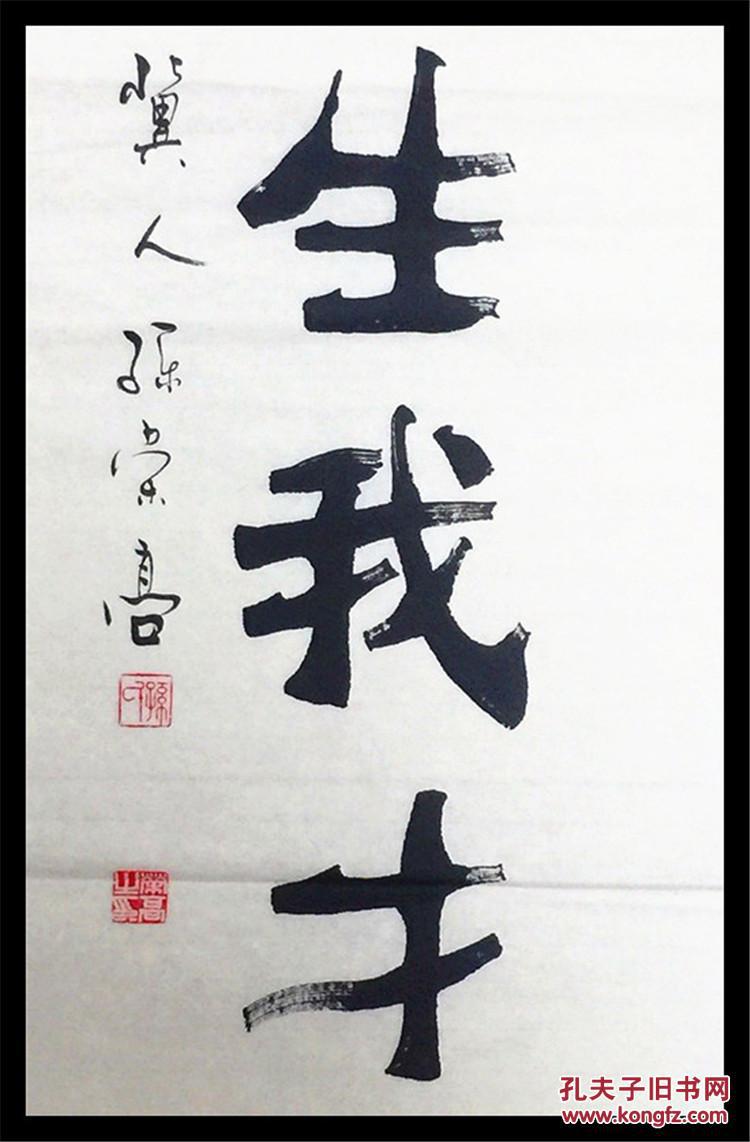 生我才
冀人孫荣高
孔夫子旧书网
www.kongfz.com